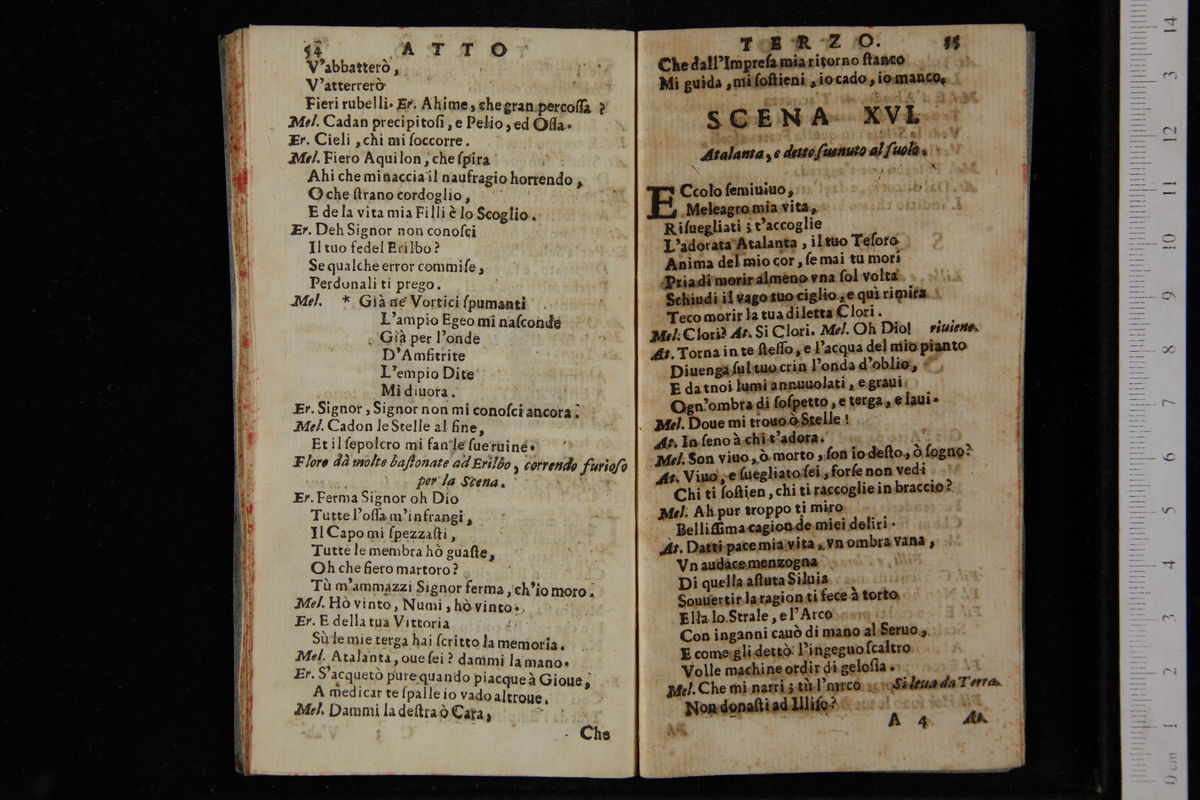 54 ATTO
V'abbatterò,
V'atterrerò
Fieri rubelli. Er. Ahime, che gran percoſſa ?
Mel. Cadan precipitoſi, e Pelio, ed Oſſa.
Er. Cieli, chi mi ſoccorre.
Mel. Fiero Aquilon, che ſpira
Ahi che minaccia il naufragio horrendo,
O che ſtrano cordoglio,
E de la vita mia Filli è lo Scoglio.
Er. Deh Signor non conoſci
Il tuo fedel Erilbo?
Se qualche error commiſe,
Perdonali ti prego.
Mel. * Già ne Vortici ſpumanti
L'ampio Egeo mi naſconde
Già per l'onde
D'Amfitrite
L'empio Dite
Mi diuora.
Er. Signor, Signor non mi conoſci ancora.
Mel. Cadon le Stelle al fine,
Et il ſepolcro mi fan le ſue ruine.
Flore dà molte baſtonate ad Erilbo, correndo furioſo
per la Scena.
Er. Ferma Signor oh Dio
Tutte l'oſſa m'infrangi,
Il Capo mi ſpezzaſti,
Tutte le membra hò guaſte,
Oh che fiero martoro?
Tù m'ammazzi Signor ferma, ch'io moro.
Mel. Hò vinto, Numi, hò vinto.
Er. E della tua Vittoria
Sù le mie terga hai ſcritto la memoria.
Mel. Atalanta, oue ſei? dammi la mano.
Er. S'acquetò pure quando piacque à Gioue,
A medicar te ſpalle io vado altroue.
Mel. Dammi la deſtra ò Cara,
Che
TERZO. 55
Che dall'Impreſa mia ritorno ſtanco
Mi guida, mi ſoſtieni, io cado, io manco.
SCENA XVI.
Atalanta, e detto ſuenuto al ſuolo.
ECcolo ſemiuiuo,
Meleagro mia vita,
Riſuegliati; t'accoglie
L'adorata Atalanta, il tuo Teſoro
Anima del mio cor, ſe mai tu mori
Pria di morir almeno vna ſol volta
Schiudi il vago tuo ciglio, e quì rimira
Teco morir la tua diletta Clori.
Mel. Clori? At. Si Clori. Mel. Oh Dio! riuiene.
At. Torna in te ſteſſo, e l'acqua del mio pianto
Diuenga ſul tuo crin l'onda d'oblio,
E da tnoi lumi annuuolati, e graui
Ogn'ombra di ſoſpetto, e terga, e laui.
Mel. Doue mi trouo ò Stelle!
At. In ſeno à chi t'adora.
Mel. Son viuo, ò morto, ſon io deſto, ò ſogno?
At. Viuo, e ſuegliato ſei, forſe non vedi
Chi ti ſoſtien, chi ti raccoglie in braccio?
Mel. Ah pur troppo ti miro
Belliſſima cagion de miei deliri.
At. Datti pace mia vita. Vn ombra vana,
Vn audace menzogna
Di quella aſtuta Siluia
Souuertir la ragion ti fece à torto
Ella lo Strale, e l'Arco
Con inganni cauò di mano al Seruo,
E come gli dettò l'ingegno ſcaltro
Volle machine ordir di geloſia.
Mel. Che mi narri; tù l'arco Si leua da Terra.
Non donaſti ad Illiſo?
A 4 At.